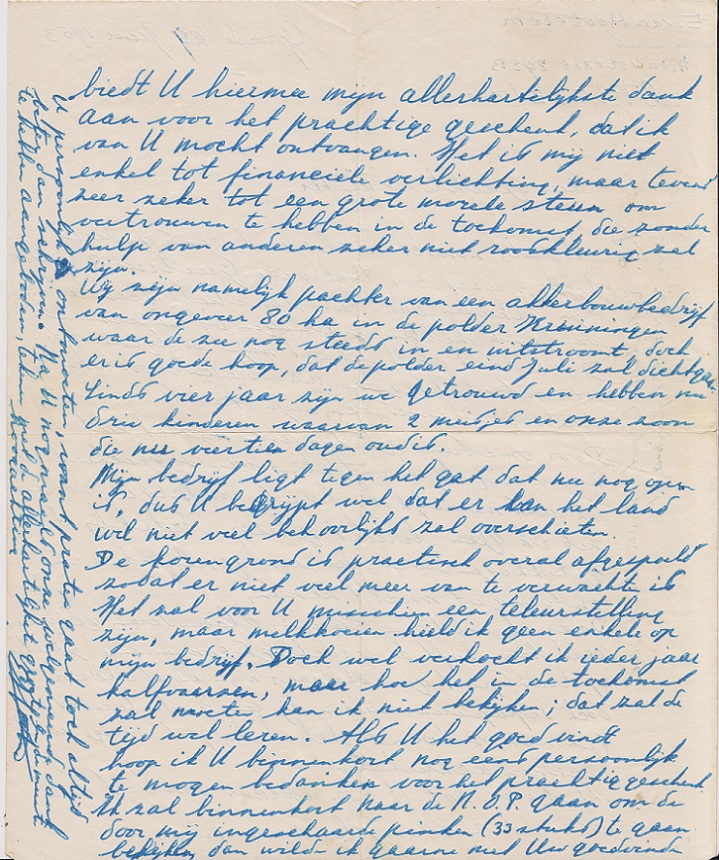 biedt U hiermee mijn allerhartelijkste dank
aan voor het prachtige geschenk, dat ik
van U mocht ontvangen. Het is mij niet
enkel tot financiele verlichting, maar tevens
zeer zeker tot een grote morele steun om
vertrouwen te hebben in de toekomst, die zonder
hulp van anderen zeker niet rooskleurig zal
zijn.
Wij zijn namelijk pachter van een akkerbouwbedrijf
van ongeveer 80 ha in de polder Kruiningen
waar de zee nog steeds in en uitstroomt, doch
er is goede hoop, dat de polder eind Juli zal dichtgaan
Sinds vier jaar zijn we getrouwd en hebben nu
drie kinderen waarvan 2 meisjes en onze zoon
die nu veertien dagen oud is.
Mijn bedrijf ligt tegen het gat dat nu nog open
is, dus U begrijpt wel dat er van het land
wel niet veel behoorlijks zal overschieten.
De bovengrond is practisch overal afgespoeld
zodat er niet veel meer van te verwachten is
Het zal voor U misschien een teleurstelling
zijn, maar melkkoeien hield ik geen enkele op
mijn bedrijf. Doch wel verkocht ik ieder jaar
kalfvaarzen, maar hoe het in de toekomst
zal moeten kan ik niet bekijken; dat zal de
tijd wel leren. Als U het goed vindt
hoop ik U binnenkort nog eens persoonlijk
te mogen bedanken voor het prachtig geschenk
Ik zal binnenkort naar de N.O.P. gaan om de
door mij ingeschaarde pinken (33 stuks) te gaan
bekijken, dan wilde ik gaarne met Uw goedvinden
U persoonlijk ontmoeten, want praten gaat toch altijd
beter dan schrijven. Na U nogmaals onze welgemeende dank
te hebben aangeboden, teken met de allerhartelijkste groeten